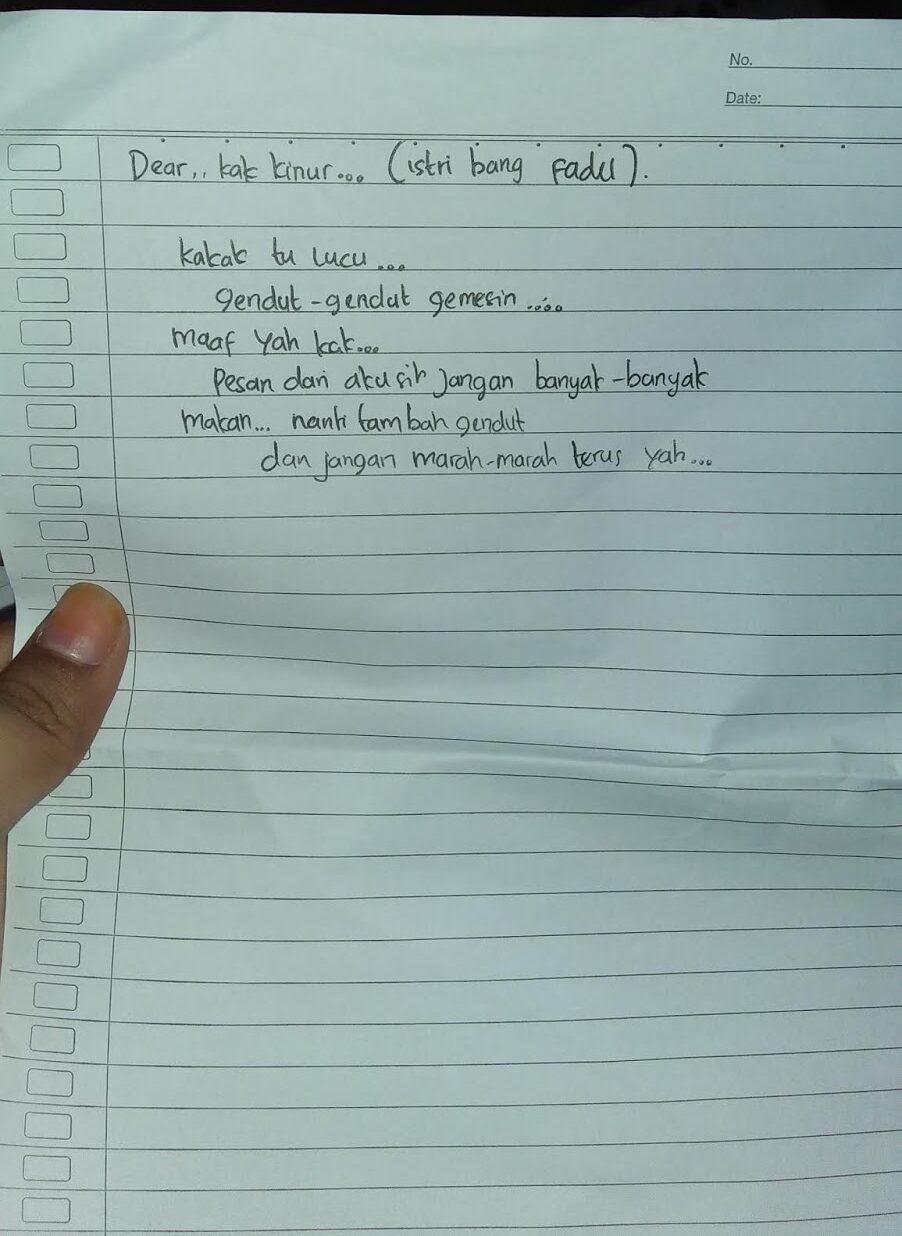 No.
Date:
Dear,, kak kinur... (istri bang fadil).
kakak tu lucu...
gendut-gendut gemesin....
maaf yah kak...
Pesan dari aku sih jangan banyak-banyak
makan... nanti tambah gendut
dan jangan marah-marah terus yah...